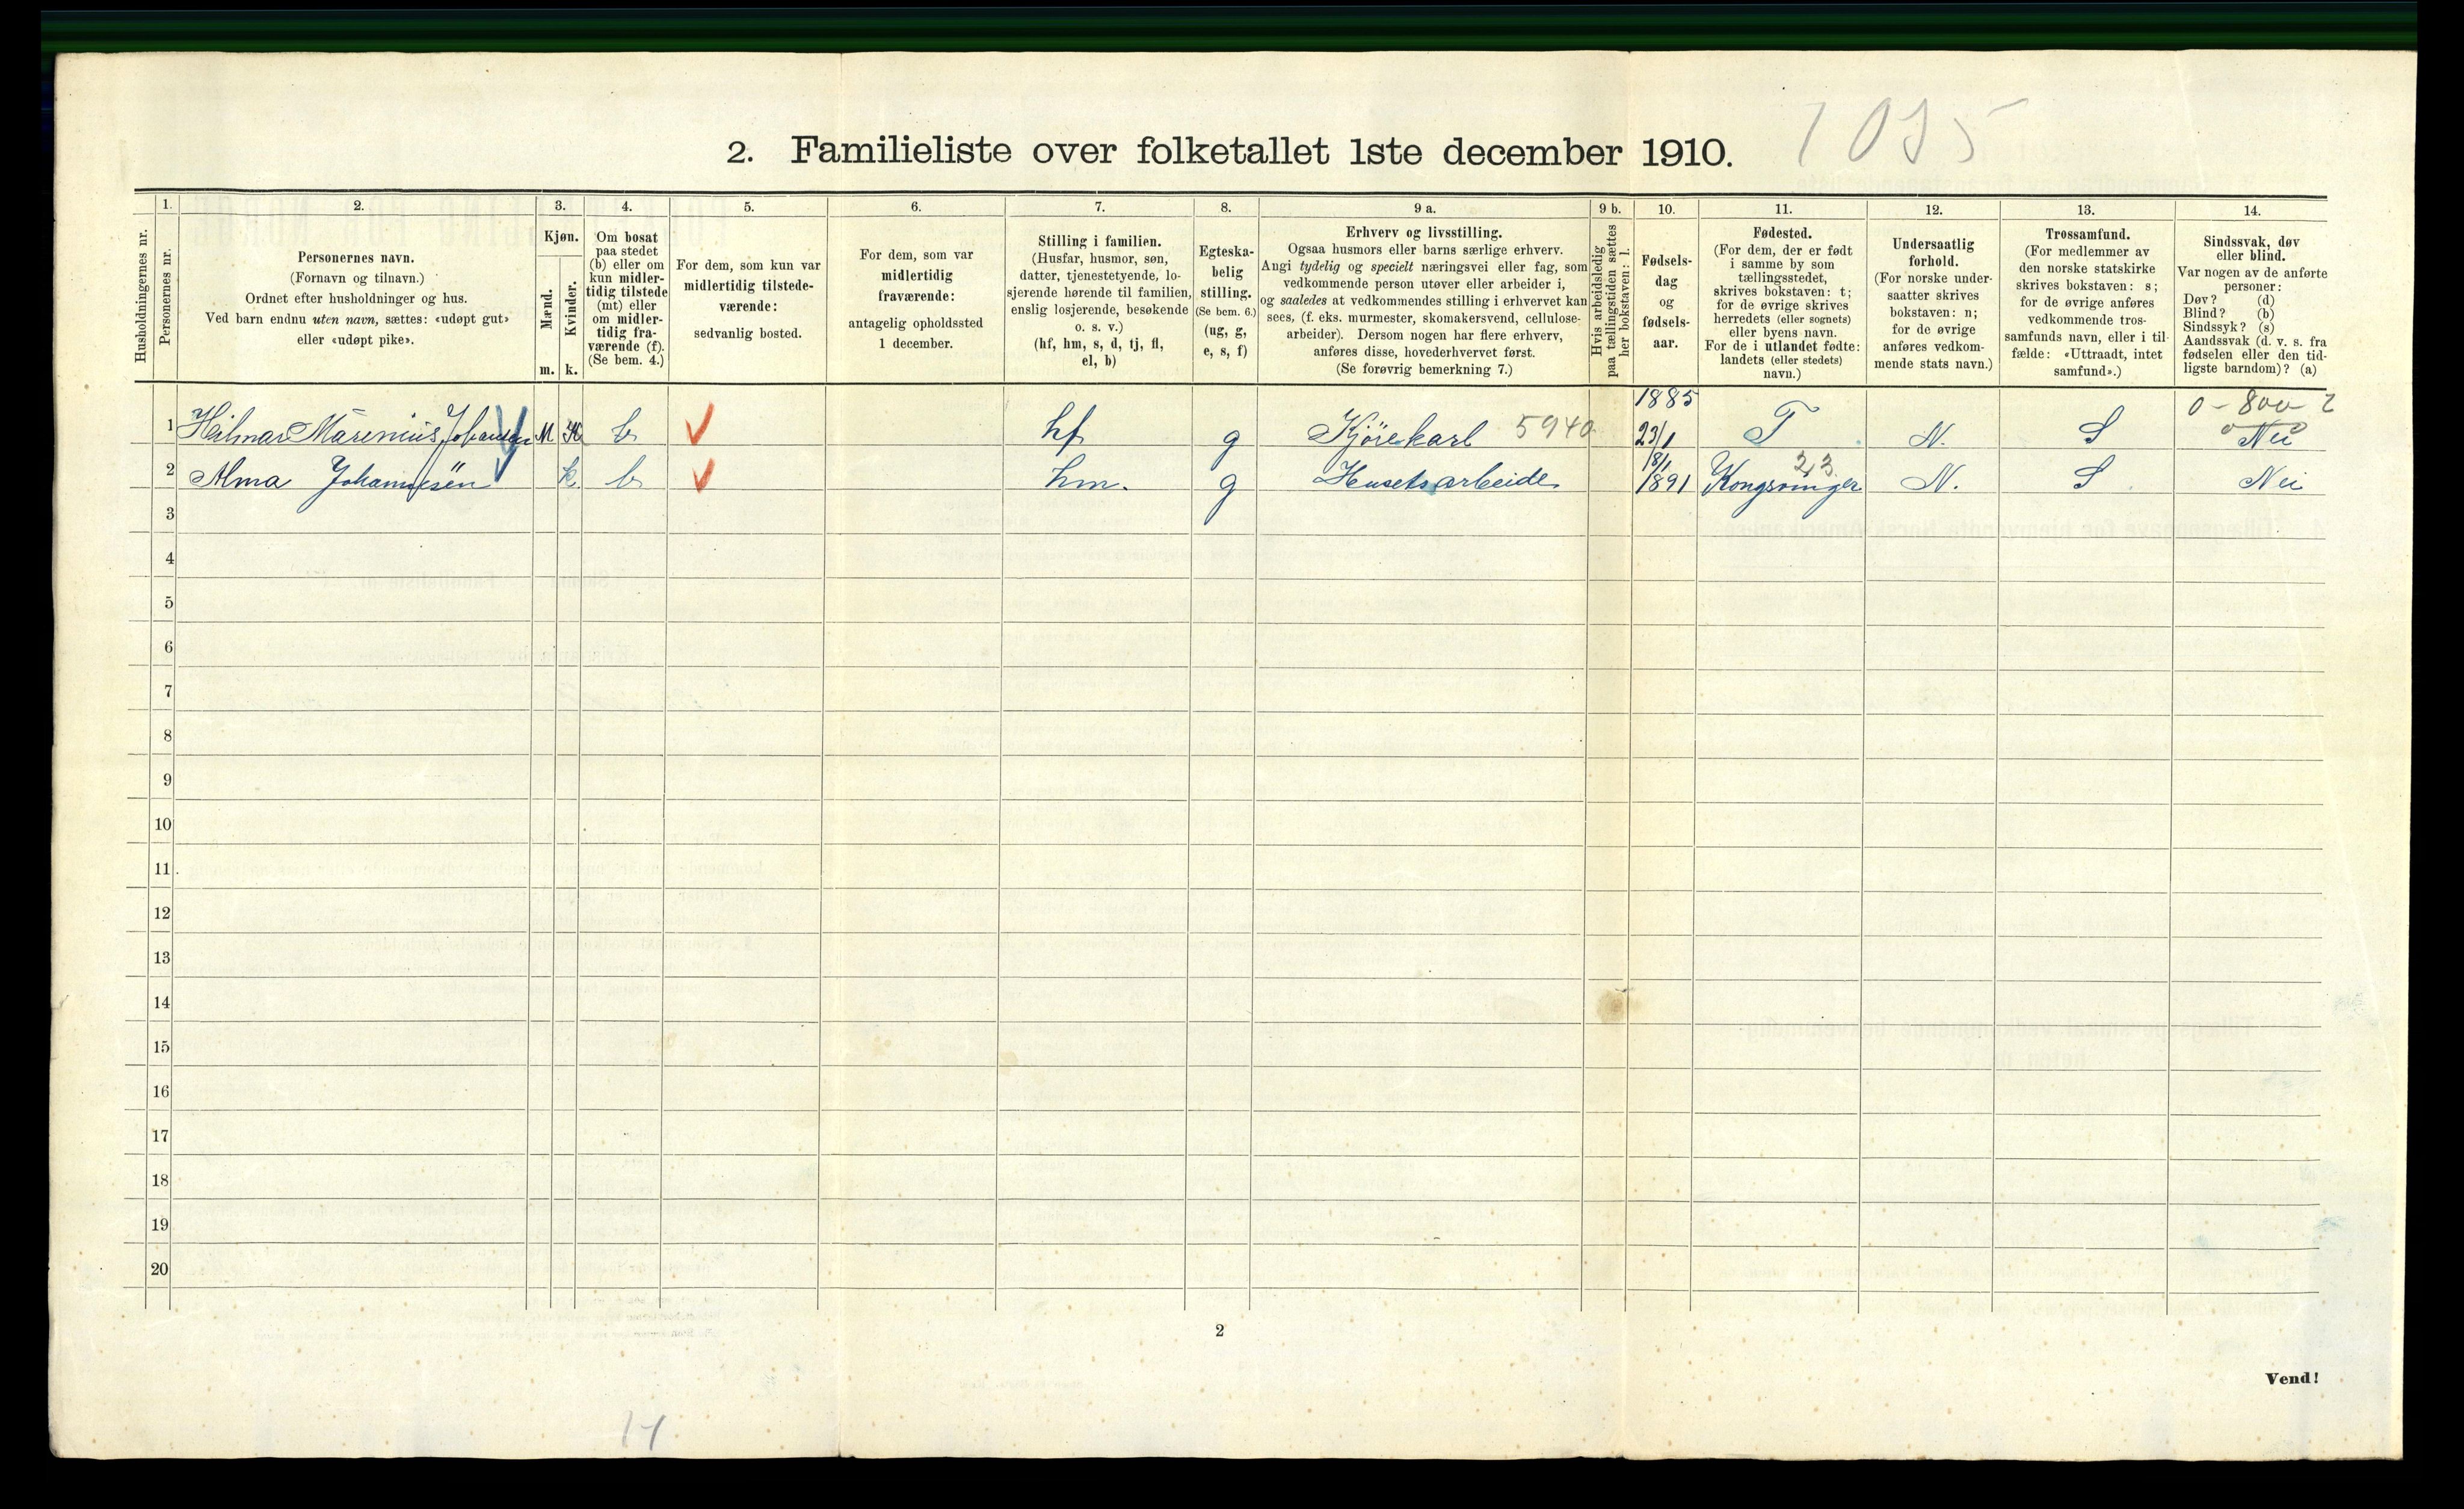 1035
2. Familieliste over folketallet 1ste december 1910.
Husholdningernes nr.
1.
Personernes nr.
2.
Personernes navn.
(Fornavn og tilnavn.)
Ordnet efter husholdninger og hus.
Ved barn endnu uten navn, sættes: «udøpt gut»
eller «udøpt pike».
3.
Kjøn.
Mænd.
m.
Kvinder.
k.
4.
Om bosat
paa stedet
(b) eller om
kun midler-
tidig tilstede
(mt) eller
om midler-
tidig fra-
værende (f).
(Se bem. 4.)
5.
For dem, som kun var
midlertidig tilstede-
værende:
sedvanlig bosted.
6.
For dem, som var
midlertidig
fraværende:
antagelig opholdssted
1 december.
7.
Stilling i familien.
(Husfar, husmor, søn,
datter, tjenestetyende, lo-
sjerende hørende til familien,
enslig losjerende, besøkende
o. s. v.)
(hf, hm, s, d, tj, fl,
el, b)
8.
Egteska-
belig
stilling.
(Se bem. 6.)
(ug, g,
e, s, f)
9 a.
Erhverv og livsstilling.
Ogsaa husmors eller barns særlige erhverv.
Angi tydelig og specielt næringsvei eller fag, som
vedkommende person utøver eller arbeider i,
og saaledes at vedkommendes stilling i erhvervet kan
sees, (f. eks. murmester, skomakersvend, cellulose-
arbeider). Dersom nogen har flere erhverv,
anføres disse, hovederhvervet først.
(Se forøvrig bemerkning 7.)
9 b.
Hvis arbeidsledig
paa tællingstiden sættes
her bokstaven: l.
10.
Fødsels-
dag
og
fødsels-
aar.
11.
Fødested.
(For dem, der er født
i samme by som
tællingsstedet,
skrives bokstaven: t;
for de øvrige skrives
herredets (eller sognets)
eller byens navn.
For de i utlandet fødte:
landets (eller stedets)
navn.)
12.
Undersaatlig
forhold.
(For norske under-
saatter skrives
bokstaven: n;
for de øvrige
anføres vedkom-
mende stats navn.)
13.
Trossamfund.
(For medlemmer av
den norske statskirke
skrives bokstaven: s;
for de øvrige anføres
vedkommende tros-
samfunds navn, eller i til-
fælde: «Uttraadt, intet
samfund».)
14.
Sindssvak, døv
eller blind.
Var nogen av de anførte
personer:
Døv? (d)
Blind? (b)
Sindssyk? (s)
Aandssvak (d. v. s. fra
fødselen eller den tid-
ligste barndom)? (a)
1885 0-800-2
1 Hilmar Marenius Johansen M b hf g Kjörekarl 5940 23/1 T N. S Nei
18/1 23
2 Alma Johannesen k b hm. g Husets arbeide 1891 Kongsvinger N. S Nei
3
4
5
6
7
8
9
10
11
12
13
14
15
16
17
18
19
20
2
Vend!